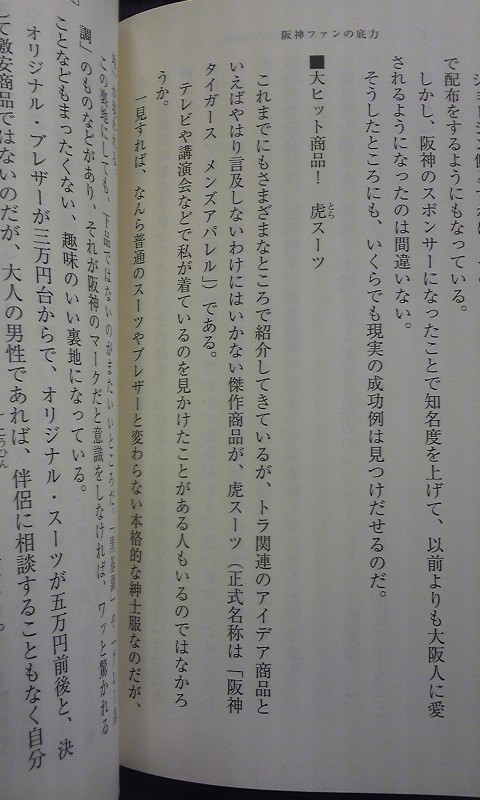 阪神ファンの底力
で配布をするようにもなっている。
しかし、阪神のスポンサーになったことで知名度を上げて、以前よりも大阪人に愛
されるようになったのは間違いない。
そうしたところにも、いくらでも現実の成功例は見つけだせるのだ。
■大ヒット商品！　虎スーツ
とら
これまでにもさまざまなところで紹介してきているが、トラ関連のアイデア商品と
いえばやはり言及しないわけにはいかない傑作商品が、虎スーツ（正式名称は「阪神
タイガース　メンズアパレル」）である。
テレビや講演会などで私が着ているのを見かけたことがある人もいるのではなかろ
うか。
一見すれば、なんら普通のスーツやブレザーと変わらない本格的な紳士服なのだが、
この裏地にしても、下品ではないのがまたいいところだ。
調」のものなどがあり、それが阪神のマークだと意識をしなければ、ワッと驚かれる
ことなどもまったくない、趣味のいい裏地になっている。
オリジナル・ブレザーが三万円台からで、オリジナル・スーツが五万円前後と、決
て激安商品ではないのだが、大人の男性であれば、伴侶に相談することもなく自分